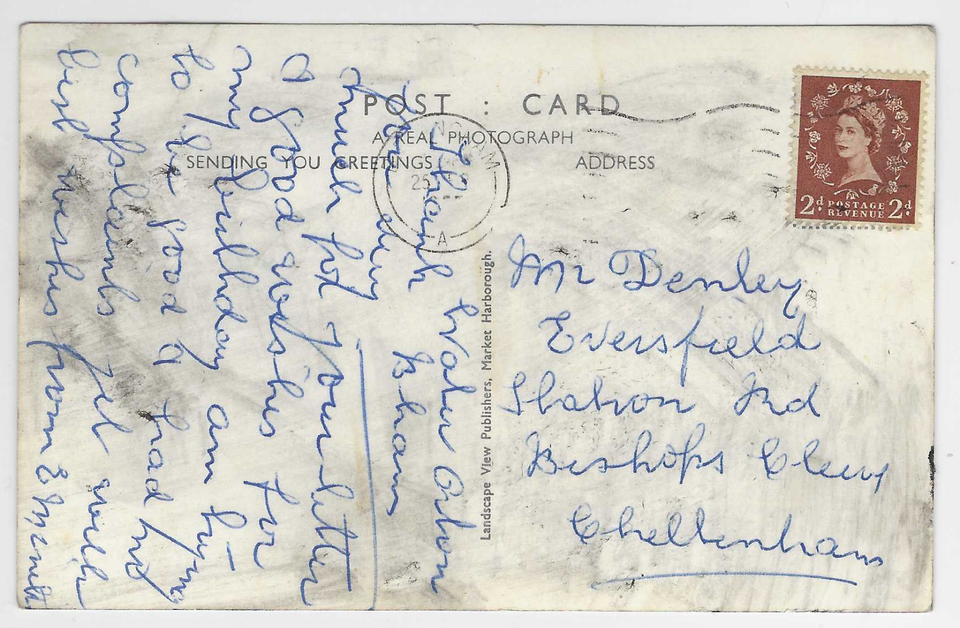 POST : CARD
A REAL PHOTOGRAPH
SENDING YOU GREETINGS
ADDRESS
2d POSTAGE REVENUE 2d
25
A
Landscape View Publishers, Market Harborough.
Mr Denley
Eversfield
Station Rd
Bishops Cleeve
Cheltenham
Water Orton
B'ham
Thank you very
much for your letter
& good wishes for
my birthday am trying
to be good & had no
complaints yet with
best wishes from E